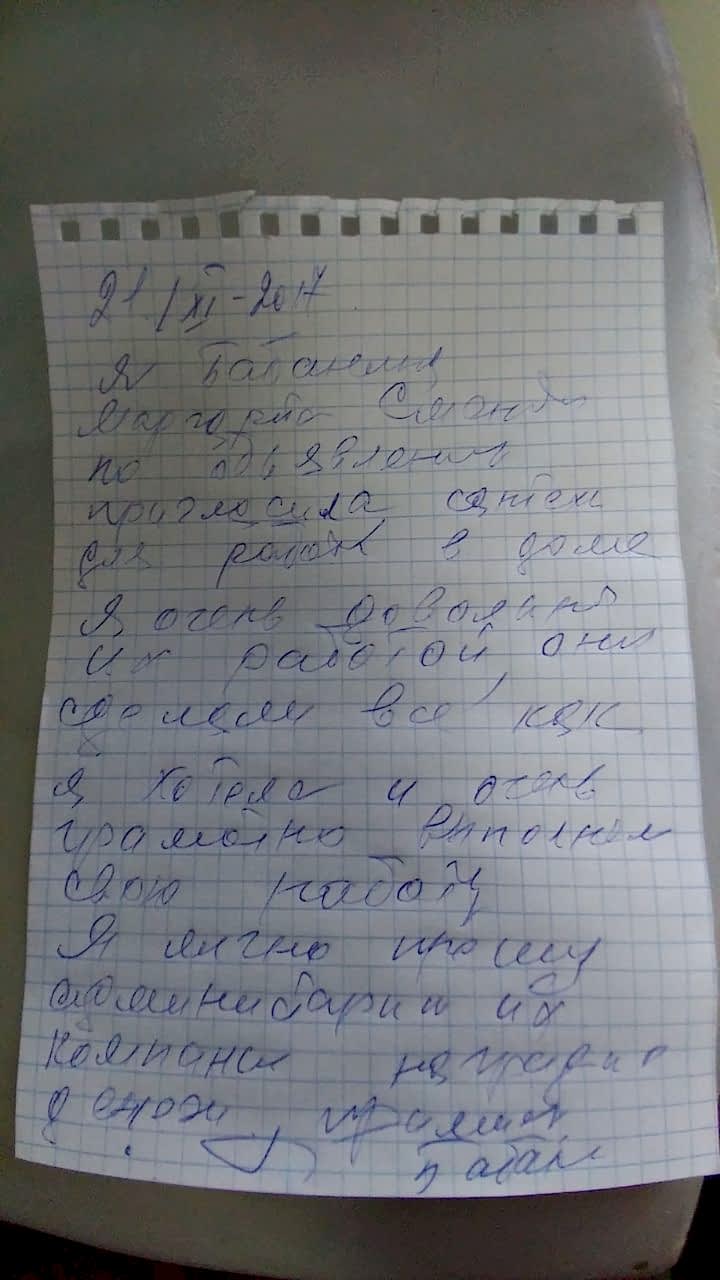 21/XI-2017
Я
Маргарита
по объявлению
пригласила сантех
для работы в доме
Я очень довольна
их работой, они
сделали все как
я хотела и очень
грамотно выполнили
свою работу
Я лично прошу
их
компании наградить
денежн премия
Бабан